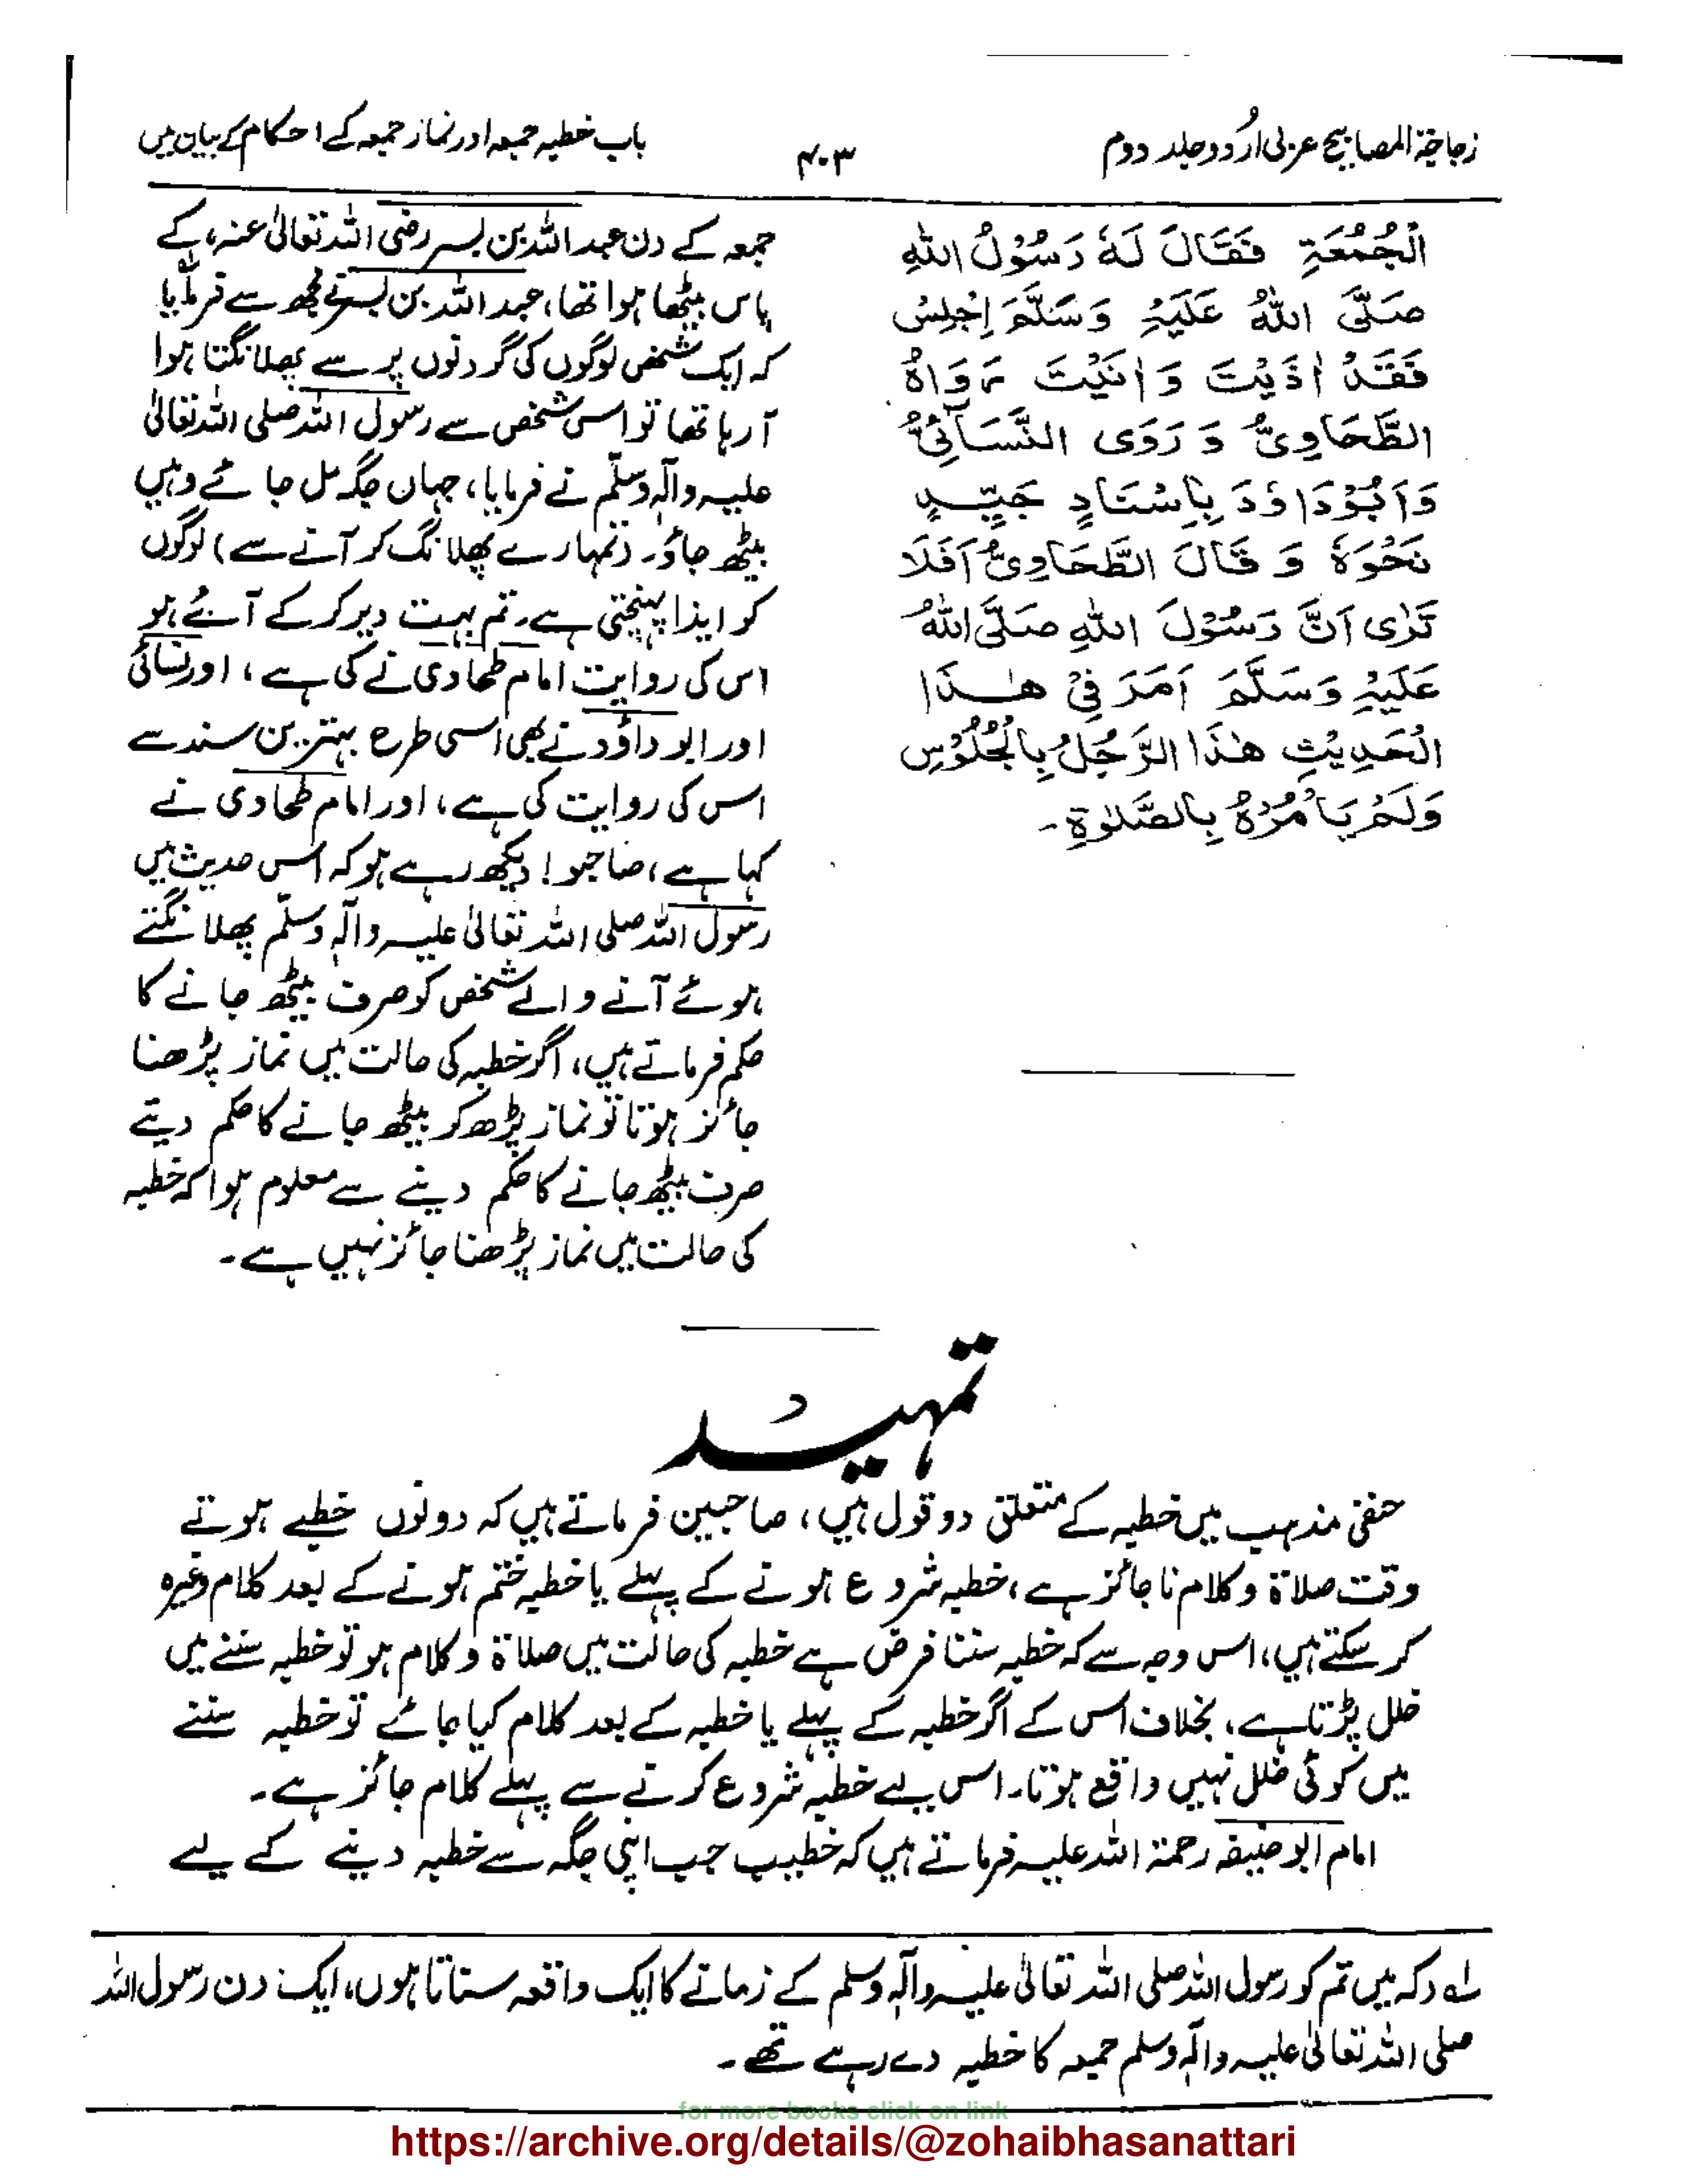 زجاجۃ المصابیح عربی اُردو جلد دوم
۴۰۳
باب خطبہ جمعہ اور نماز جمعہ کے احکام کے بیان میں
الْجُمُعَةِ فَقَالَ لَهٗ رَسُوْلُ اللهِ
صَلَّى اللهُ عَلَيْهِ وَسَلَّمَ اِجْلِسْ
فَقَدْ اٰذَيْتَ وَاٰنَيْتَ رَوَاهُ
الطَّحَاوِىُّ وَ رَوَى النَّسَآئِىُّ
وَاَبُوْدَاوٗدَ بِاِسْنَادٍ جَيِّدٍ
نَحْوَهٗ وَ قَالَ الطَّحَاوِىُّ اَفَلَا
تَرٰى اَنَّ رَسُوْلَ اللهِ صَلَّى اللهُ
عَلَيْهِ وَسَلَّمَ اَمَرَ فِىْ هٰذَا
الْحَدِيْثِ هٰذَا الرَّجُلَ بِالْجُلُوْسِ
وَلَمْ يَاْمُرْهُ بِالصَّلٰوةِ۔
جمعہ کے دن عبد اللہ بن بسر رضی اللہ تعالیٰ عنہ، کے
پاس بیٹھا ہوا تھا، عبد اللہ بن بسر نے مجھ سے فرمایا
کہ ایک شخص لوگوں کی گردنوں پر سے پھلانگتا ہوا
آ رہا تھا تو اس شخص سے رسول اللہ صلی اللہ تعالیٰ
علیہ وآلہٖ وسلّم نے فرمایا، جہاں جگہ مل جائے وہیں
بیٹھ جاؤ۔ (تمہارے پھلانگ کر آنے سے) لوگوں
کو ایذا پہنچتی ہے۔ تم بہت دیر کر کے آئے ہو
اس کی روایت امام طحاوی نے کی ہے، اور نسائی
اور ابو داؤد نے بھی اسی طرح بہترین سند سے
اس کی روایت کی ہے، اور امام طحاوی نے
کہا ہے، صاحبو! دیکھ رہے ہو کہ اس حدیث میں
رسول اللہ صلی اللہ تعالیٰ علیہ وآلہٖ وسلّم پھلانگتے
ہوئے آنے والے شخص کو صرف بیٹھ جانے کا
حکم فرماتے ہیں، اگر خطبہ کی حالت میں نماز پڑھنا
جائز ہوتا تو نماز پڑھ کر بیٹھ جانے کا حکم دیتے
صرف بیٹھ جانے کا حکم دینے سے معلوم ہوا کہ خطبہ
کی حالت میں نماز پڑھنا جائز نہیں ہے۔
تمہید
حنفی مذہب میں خطبہ کے متعلق دو قول ہیں، صاحبین فرماتے ہیں کہ دونوں خطبے ہوتے
وقت صلاۃ و کلام ناجائز ہے، خطبہ شروع ہونے کے پہلے یا خطبہ ختم ہونے کے بعد کلام وغیرہ
کر سکتے ہیں، اس وجہ سے کہ خطبہ سننا فرض ہے خطبہ کی حالت میں صلاۃ و کلام ہو تو خطبہ سننے میں
خلل پڑتا ہے، بخلاف اس کے اگر خطبہ کے پہلے یا خطبہ کے بعد کلام کیا جائے تو خطبہ سننے
میں کوئی خلل نہیں واقع ہوتا۔ اس لیے خطبہ شروع کرنے سے پہلے کلام جائز ہے۔
امام ابو حنیفہ رحمۃ اللہ علیہ فرماتے ہیں کہ خطیب جب اپنی جگہ سے خطبہ دینے کے لیے
لہ (کہ میں تم کو رسول اللہ صلی اللہ تعالیٰ علیہ وآلہٖ وسلم کے زمانے کا ایک واقعہ سناتا ہوں، ایک دن رسول اللہ
صلی اللہ تعالیٰ علیہ وآلہٖ وسلم جمعہ کا خطبہ دے رہے تھے۔
for more books click on link
https://archive.org/details/@zohaibhasanattari